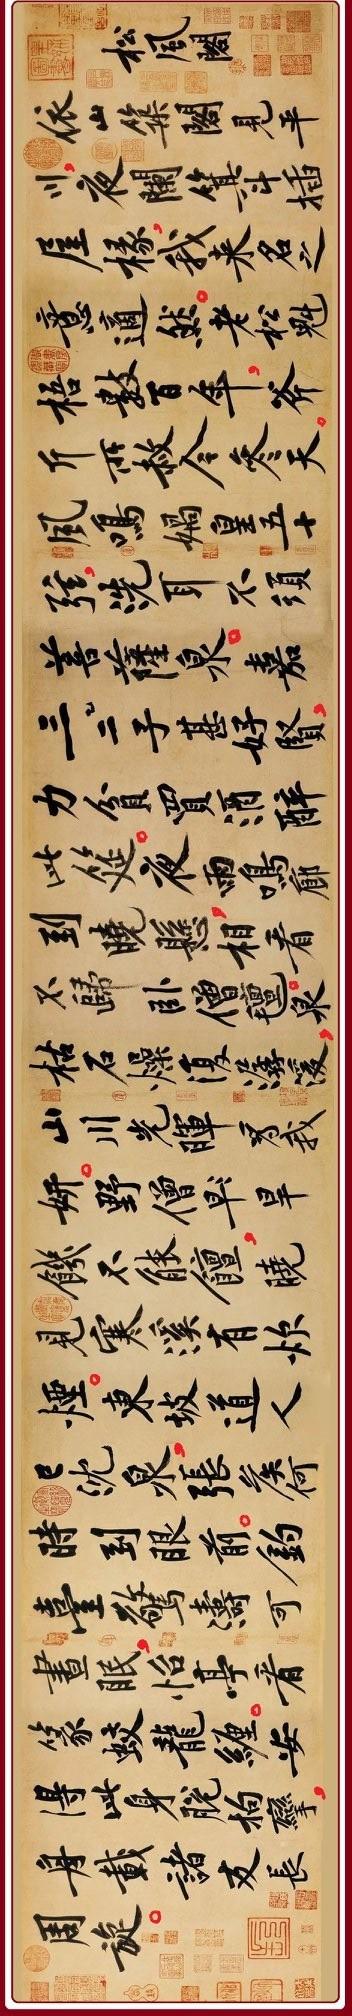 松風閣
依山築閣見平
川，夜闌箕斗插
屋椽，我來名之
意適然。老松魁
梧數百年，斧
斤所赦今參天。
風鳴媧皇五十
弦，洗耳不須
菩薩泉。嘉
三二子甚好賢，
力貧買酒醉
此筵。夜雨鳴廊
到曉懸，相看
不歸卧僧氈。泉
枯石燥復潺湲，
山川光暉為我
妍。野僧早旱
饑不能饘，曉
見寒溪有炊
煙。東坡道人
已沈泉，張侯何
時到眼前。釣
臺驚濤可
晝眠，怡亭看
篆蛟龍纏。安
得此身脫拘攣，
舟載諸友長
周旋。